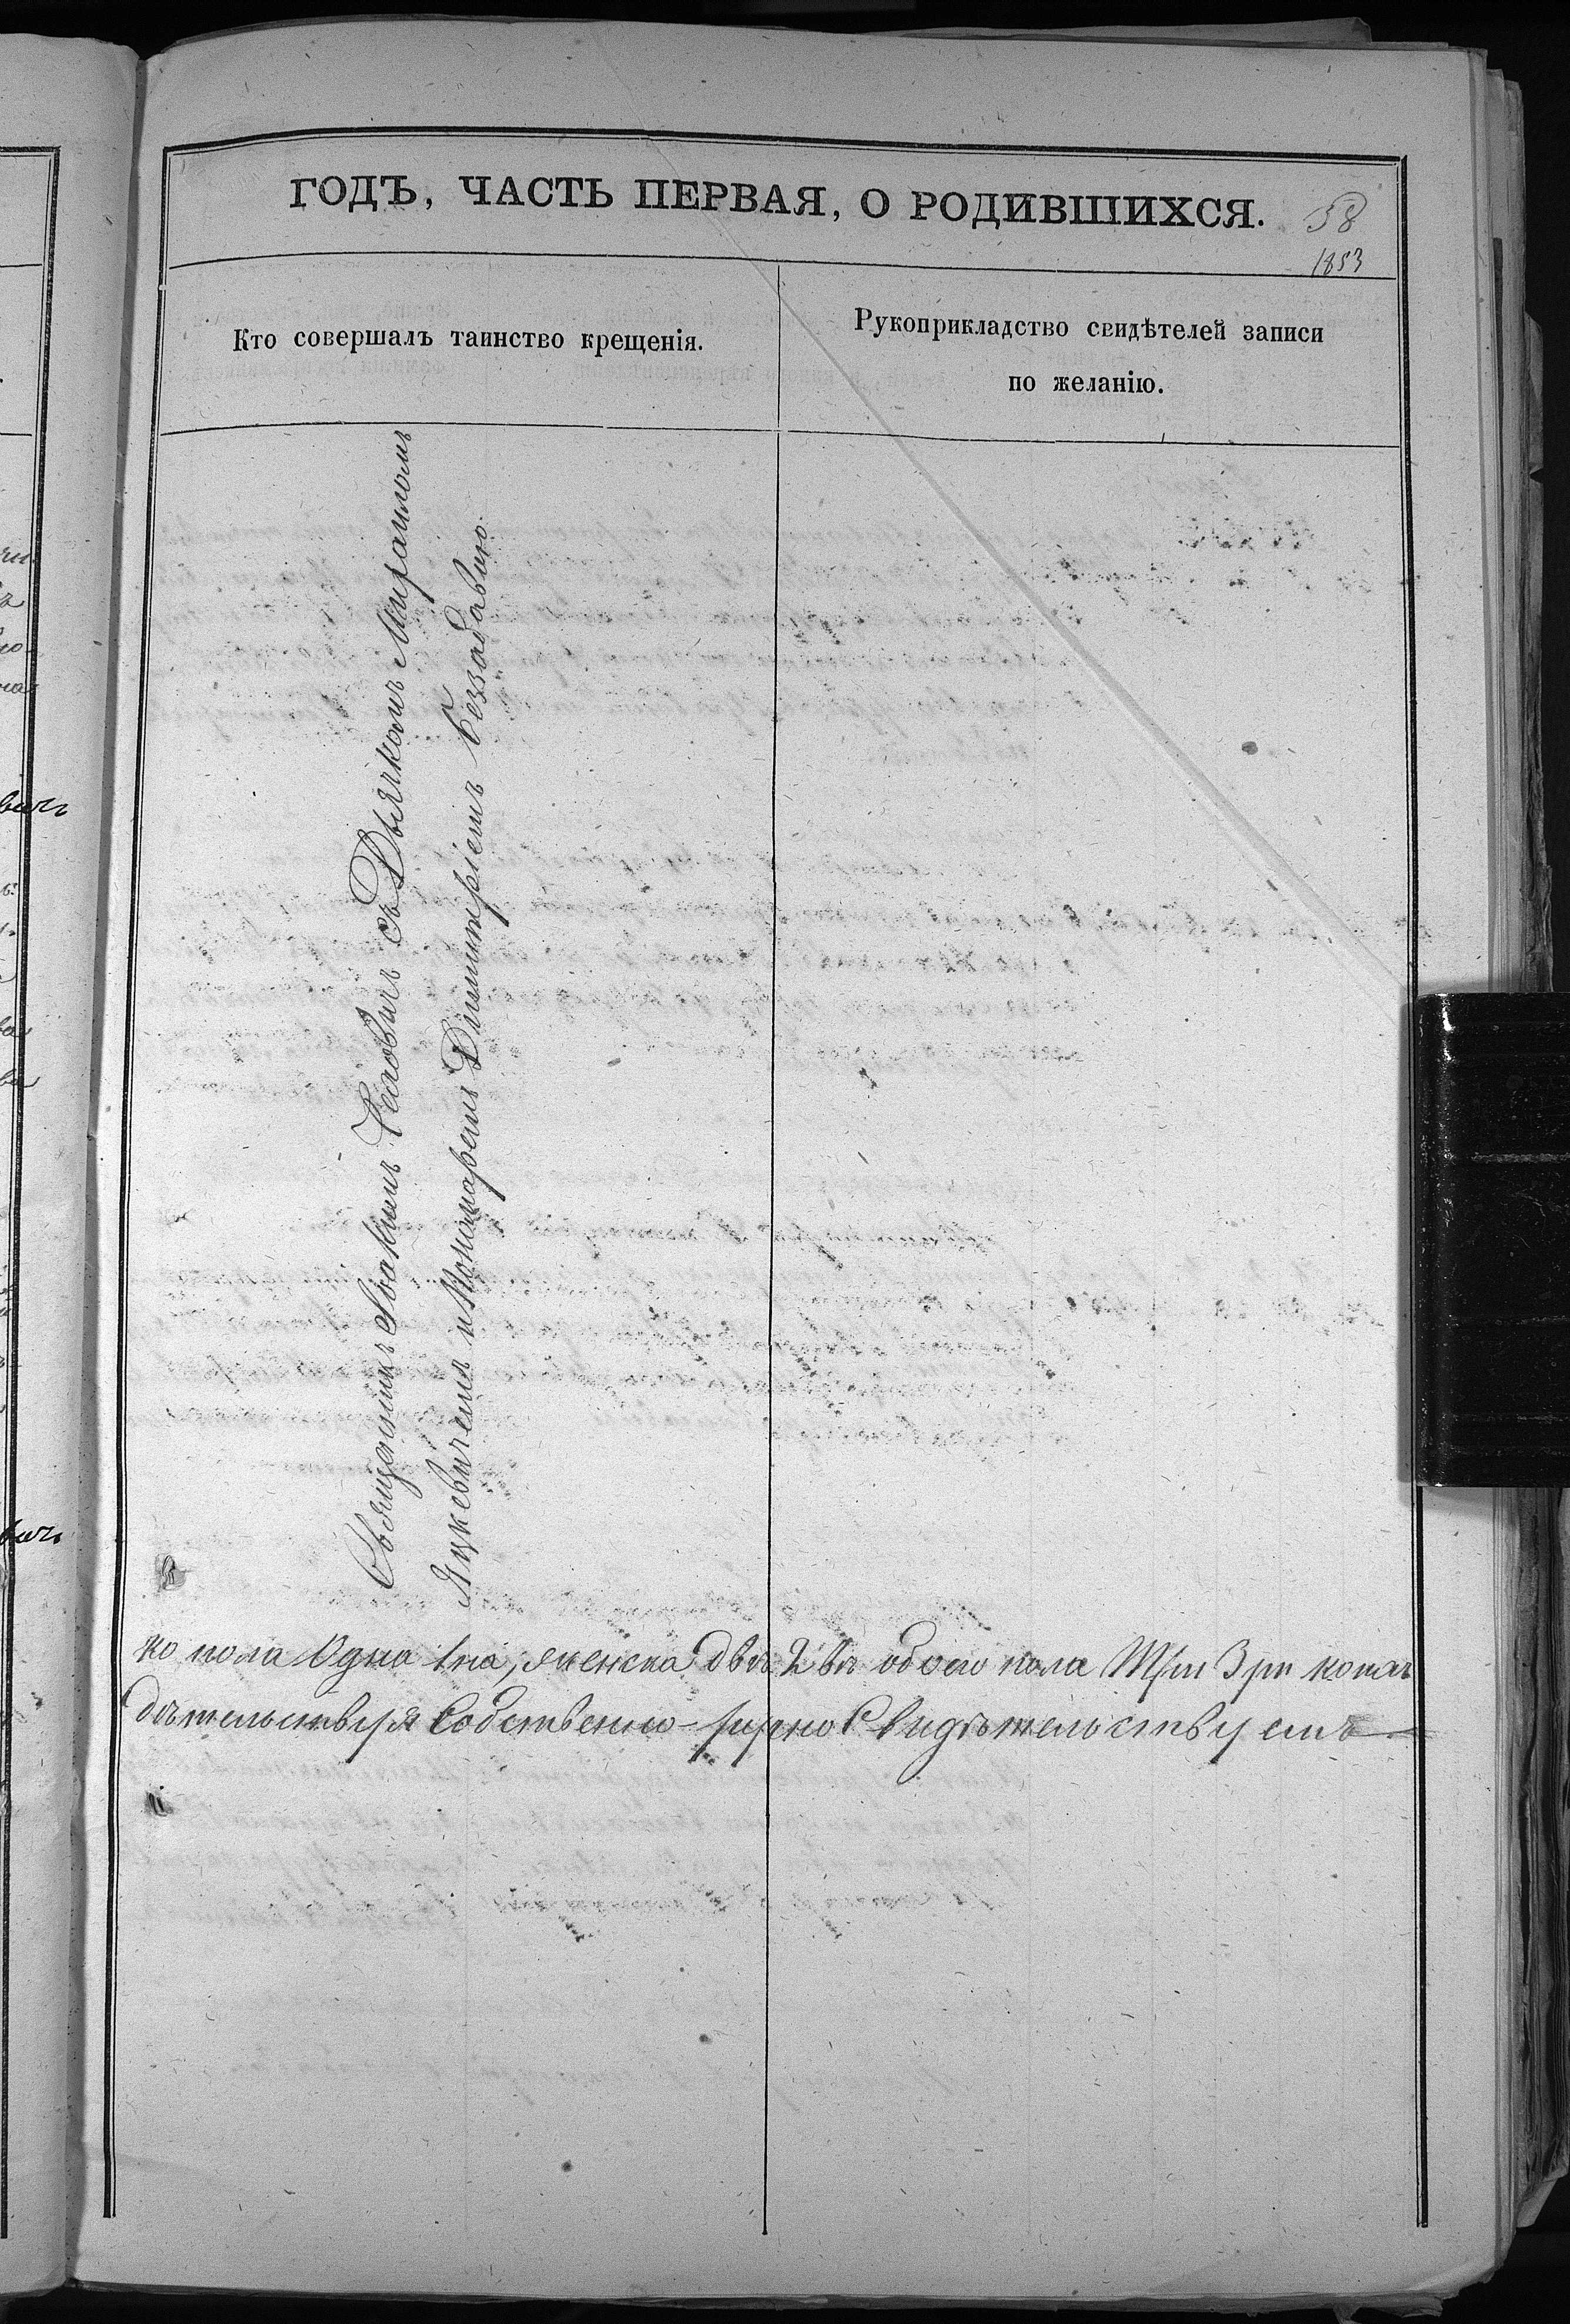 ГОДЪ, ЧАСТЬ ПЕРВАЯ, О РОДИВШИХСЯ.
58
1853
Кто совершалъ таинство крещенія.
Рукоприкладство свидѣтелей записи
по желанію.
Священникъ Іоакимъ съ Дьячкомъ
Яцкевичемъ и Пономаремъ Димитріемъ
ко пола Одна 1на, женска двѣ 2вѣ обоего пола Три 3ри
дѣтельствуя Собственно-ручно Свидѣтельствуемъ